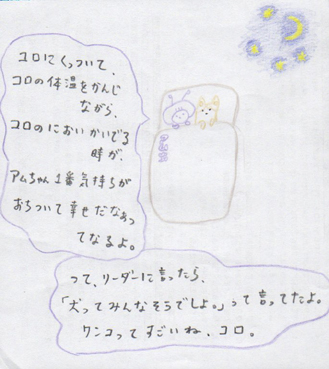 コロにくっついて、
コロの体温をかんじ
ながら、
コロのにおいかいでる
時が、
アムちゃん1番気持ちが
おちついて幸せだなぁっ
てなるよ。
って、リーダーに言ったら、
「犬ってみんなそうでしょ。」って言ってたよ。
ワンコってすごいね、コロ。